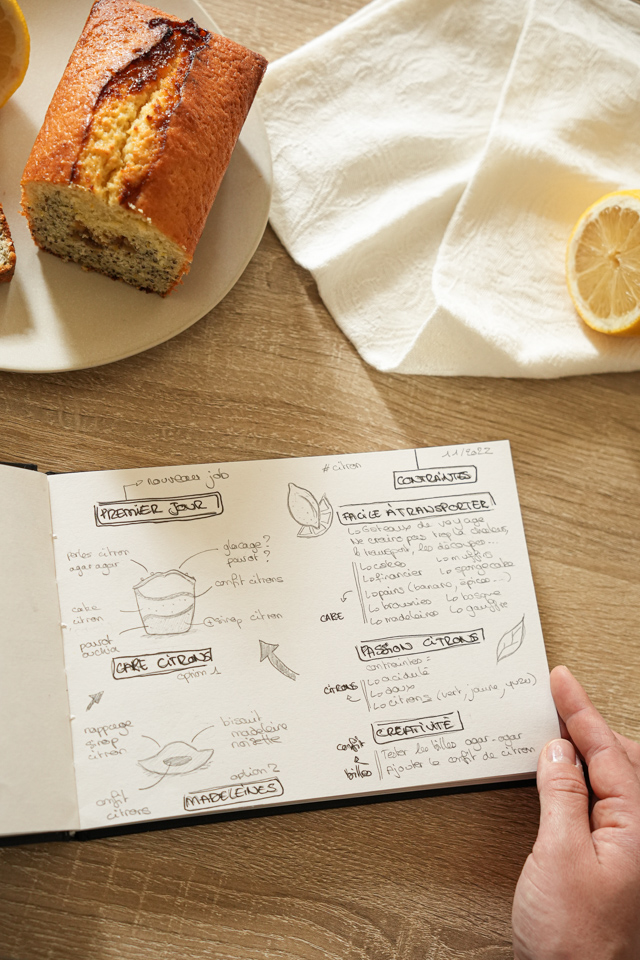 nouveau job
PREMIER JOUR
perles citron
agar agar
glaçage?
pavot?
confit citrons
cake
citron
pavot
⊕ sirop citron
CAKE CITRONS
option 1
nappage
sirop
citron
biscuit
madeleine
noisette
confit
citrons
option 2
MADELEINES
#citron
11/2022
CONTRAINTES
FACILE À TRANSPORTER
Gâteaux de voyage
Ne craint pas trop la chaleur,
le transport, les découpes...
cakes
muffins
financier
spongecake
pains (banane, épices...)
brownies
basque
madeleines
gauffre
CAKE
PASSION CITRONS
contraintes =
acidulé
doux
citrons (vert, jaune, yuzu)
CITRONS
CREATIVITÉ
Tester les billes agar-agar
Ajouter le confit de citron
confit
&
billes